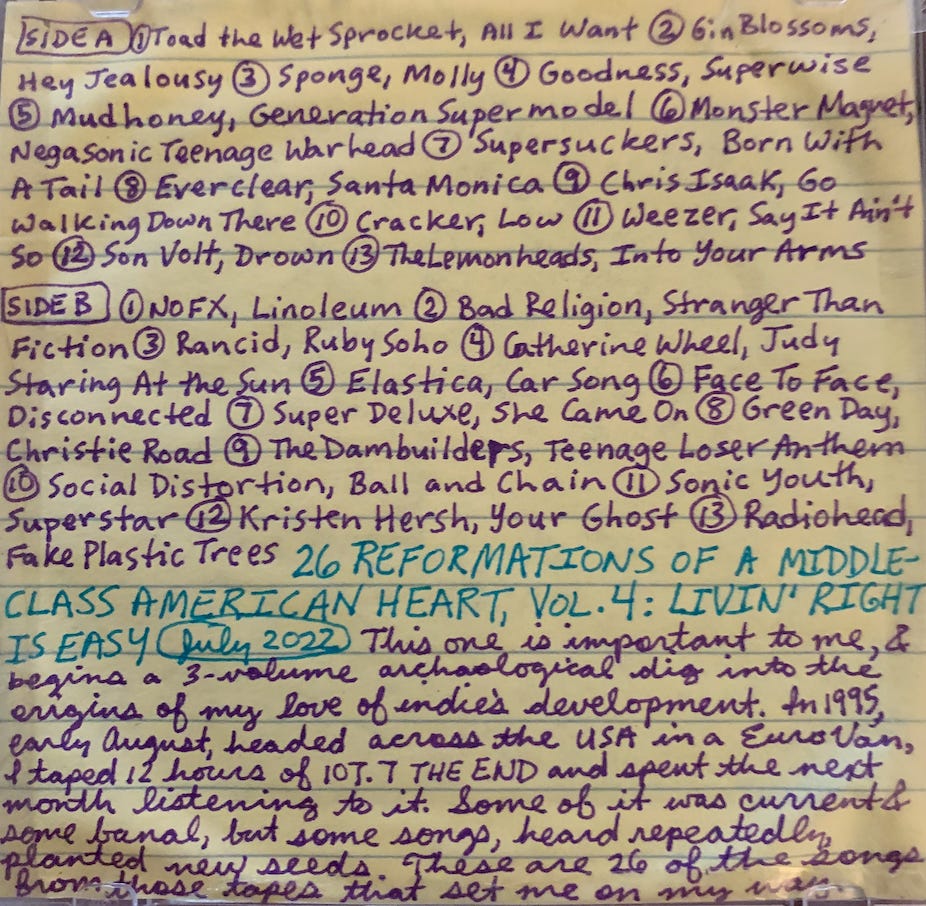 SIDE A ① Toad the Wet Sprocket, All I Want ② Gin Blossoms,
Hey Jealousy ③ Sponge, Molly ④ Goodness, Superwise
⑤ Mudhoney, Generation Supermodel ⑥ Monster Magnet,
Negasonic Teenage Warhead ⑦ Supersuckers, Born With
A Tail ⑧ Everclear, Santa Monica ⑨ Chris Isaak, Go
Walking Down There ⑩ Cracker, Low ⑪ Weezer, Say It Ain't
So ⑫ Son Volt, Drown ⑬ The Lemonheads, Into Your Arms
SIDE B ① NOFX, Linoleum ② Bad Religion, Stranger Than
Fiction ③ Rancid, Ruby Soho ④ Catherine Wheel, Judy
Staring At the Sun ⑤ Elastica, Car Song ⑥ Face To Face,
Disconnected ⑦ Super Deluxe, She Came On ⑧ Green Day,
Christie Road ⑨ The Dambuilders, Teenage Loser Anthem
⑩ Social Distortion, Ball and Chain ⑪ Sonic Youth,
Superstar ⑫ Kristen Hersh, Your Ghost ⑬ Radiohead,
Fake Plastic Trees 26 REFORMATIONS OF A MIDDLE-
CLASS AMERICAN HEART, VOL. 4: LIVIN' RIGHT
IS EASY July 2022 This one is important to me, &
begins a 3-volume archaological dig into the
origins of my love of indie's development. In 1995,
early August, headed across the USA in a EuroVan,
I taped 12 hours of 107.7 THE END and spent the next
month listening to it. Some of it was current &
some banal, but some songs, heard repeatedly,
planted new seeds. These are 26 of the songs
from those tapes that set me on my way.